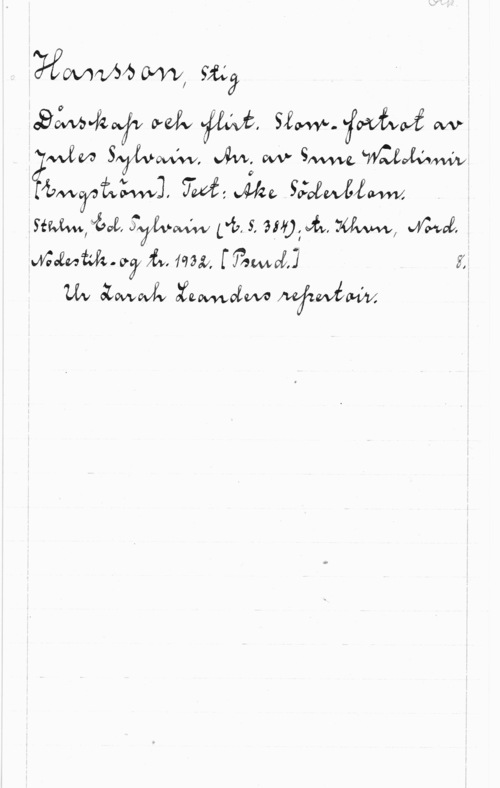 Ork.
Hansson, Stig
Dårskap och flirt. Slow-foxtrot av
Jules Sylvain. Arr. av Sune Waldimir
[Engström]. Text: Åke Söderblom.
Sthlm, Ed. Sylvain (E. S. 384); tr. Khvn, Nord.
Nodestik- og tr. 1932. [Pseud.] 8.
Ur Zarah Leanders repertoir.